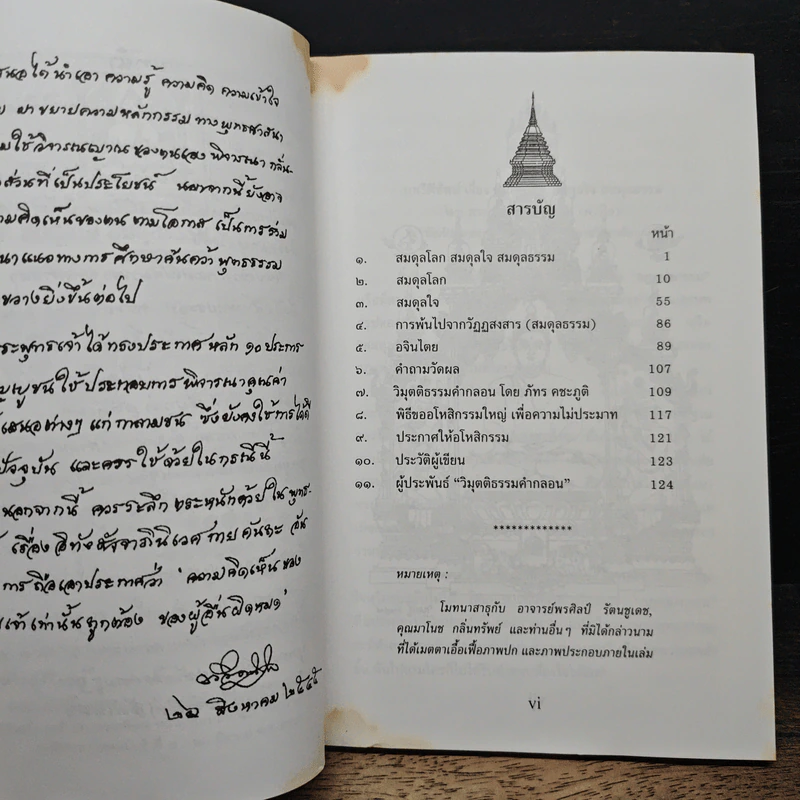 เสนอได้นำเอา ความรู้ ความคิด ความเข้าใจ
มาขยายความหลักกรรม ทางพุทธศาสนา
ใช้วิจารณญาณของตนเอง พิจารณา กลั่น-
ส่วนที่เป็นประโยชน์ นอกจากนี้ ยังอาจ
ความคิดเห็นของตน ตามโอกาส เป็นการร่วม
แนวทางการศึกษาค้นคว้า พุทธธรรม
ขวางยิ่งขึ้นต่อไป
พระพุทธเจ้าได้ทรงประกาศ หลัก ๑๐ ประการ
ใช้ประกอบการพิจารณาคุณค่า
เสนอต่างๆ แก่ กาลามชน ซึ่งยังคงใช้การได้ดี
ปัจจุบัน และควรใช้ด้วยในกรณีนี้
นอกจากนี้ ควรระลึก ตระหนักด้วยใน พุทธ-
เรื่อง อิทังสัจจาภินิเวส กายคันถะ อัน
การถือเอาประกาศว่า 'ความคิดเห็นของ
เท่านั้นถูกต้อง ของผู้อื่นผิดหมด'
๒๖ สิงหาคม ๒๕๔๕
สารบัญ
หน้า
๑. สมดุลโลก สมดุลใจ สมดุลธรรม 1
๒. สมดุลโลก 10
๓. สมดุลใจ 55
๔. การพ้นไปจากวัฏฏสงสาร (สมดุลธรรม) 86
๕. อจินไตย 89
๖. คำถามวัดผล 107
๗. วิมุตติธรรมคำกลอน โดย ภัทร คชะภูติ 109
๘. พิธีขออโหสิกรรมใหญ่ เพื่อความไม่ประมาท 117
๙. ประกาศให้อโหสิกรรม 121
๑๐. ประวัติผู้เขียน 123
๑๑. ผู้ประพันธ์ “วิมุตติธรรมคำกลอน” 124
*************
หมายเหตุ :
โมทนาสาธุกับ อาจารย์พรศิลป์ รัตนชูเดช,
คุณมาโนช กลิ่นทรัพย์ และท่านอื่นๆ ที่มิได้กล่าวนาม
ที่ได้เมตตาเอื้อเฟื้อภาพปก และภาพประกอบภายในเล่ม
vi